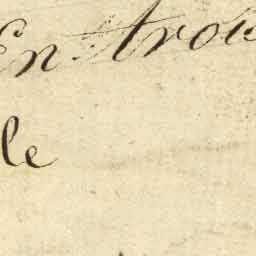 En trois
le